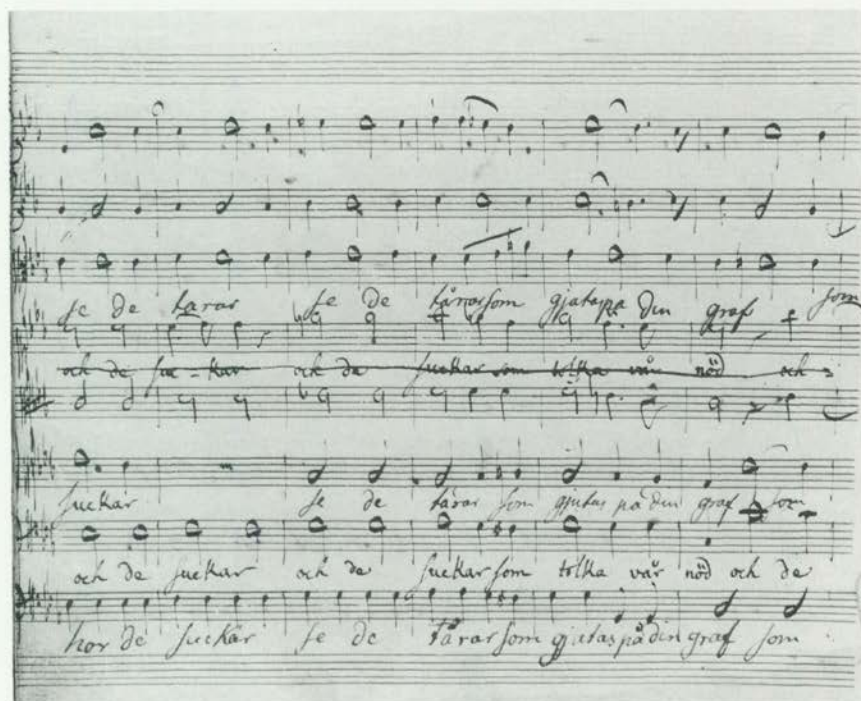 se de tarar se de tårar som gjutas pa din graf som
och de suc-kar och de suckar som tolka vår nöd och
suckar se de tårar som gjutas på din graf som
och de suckar och de suckar som tolka vår nöd och de
hor de suckar se de tårar som gjutas på din graf som